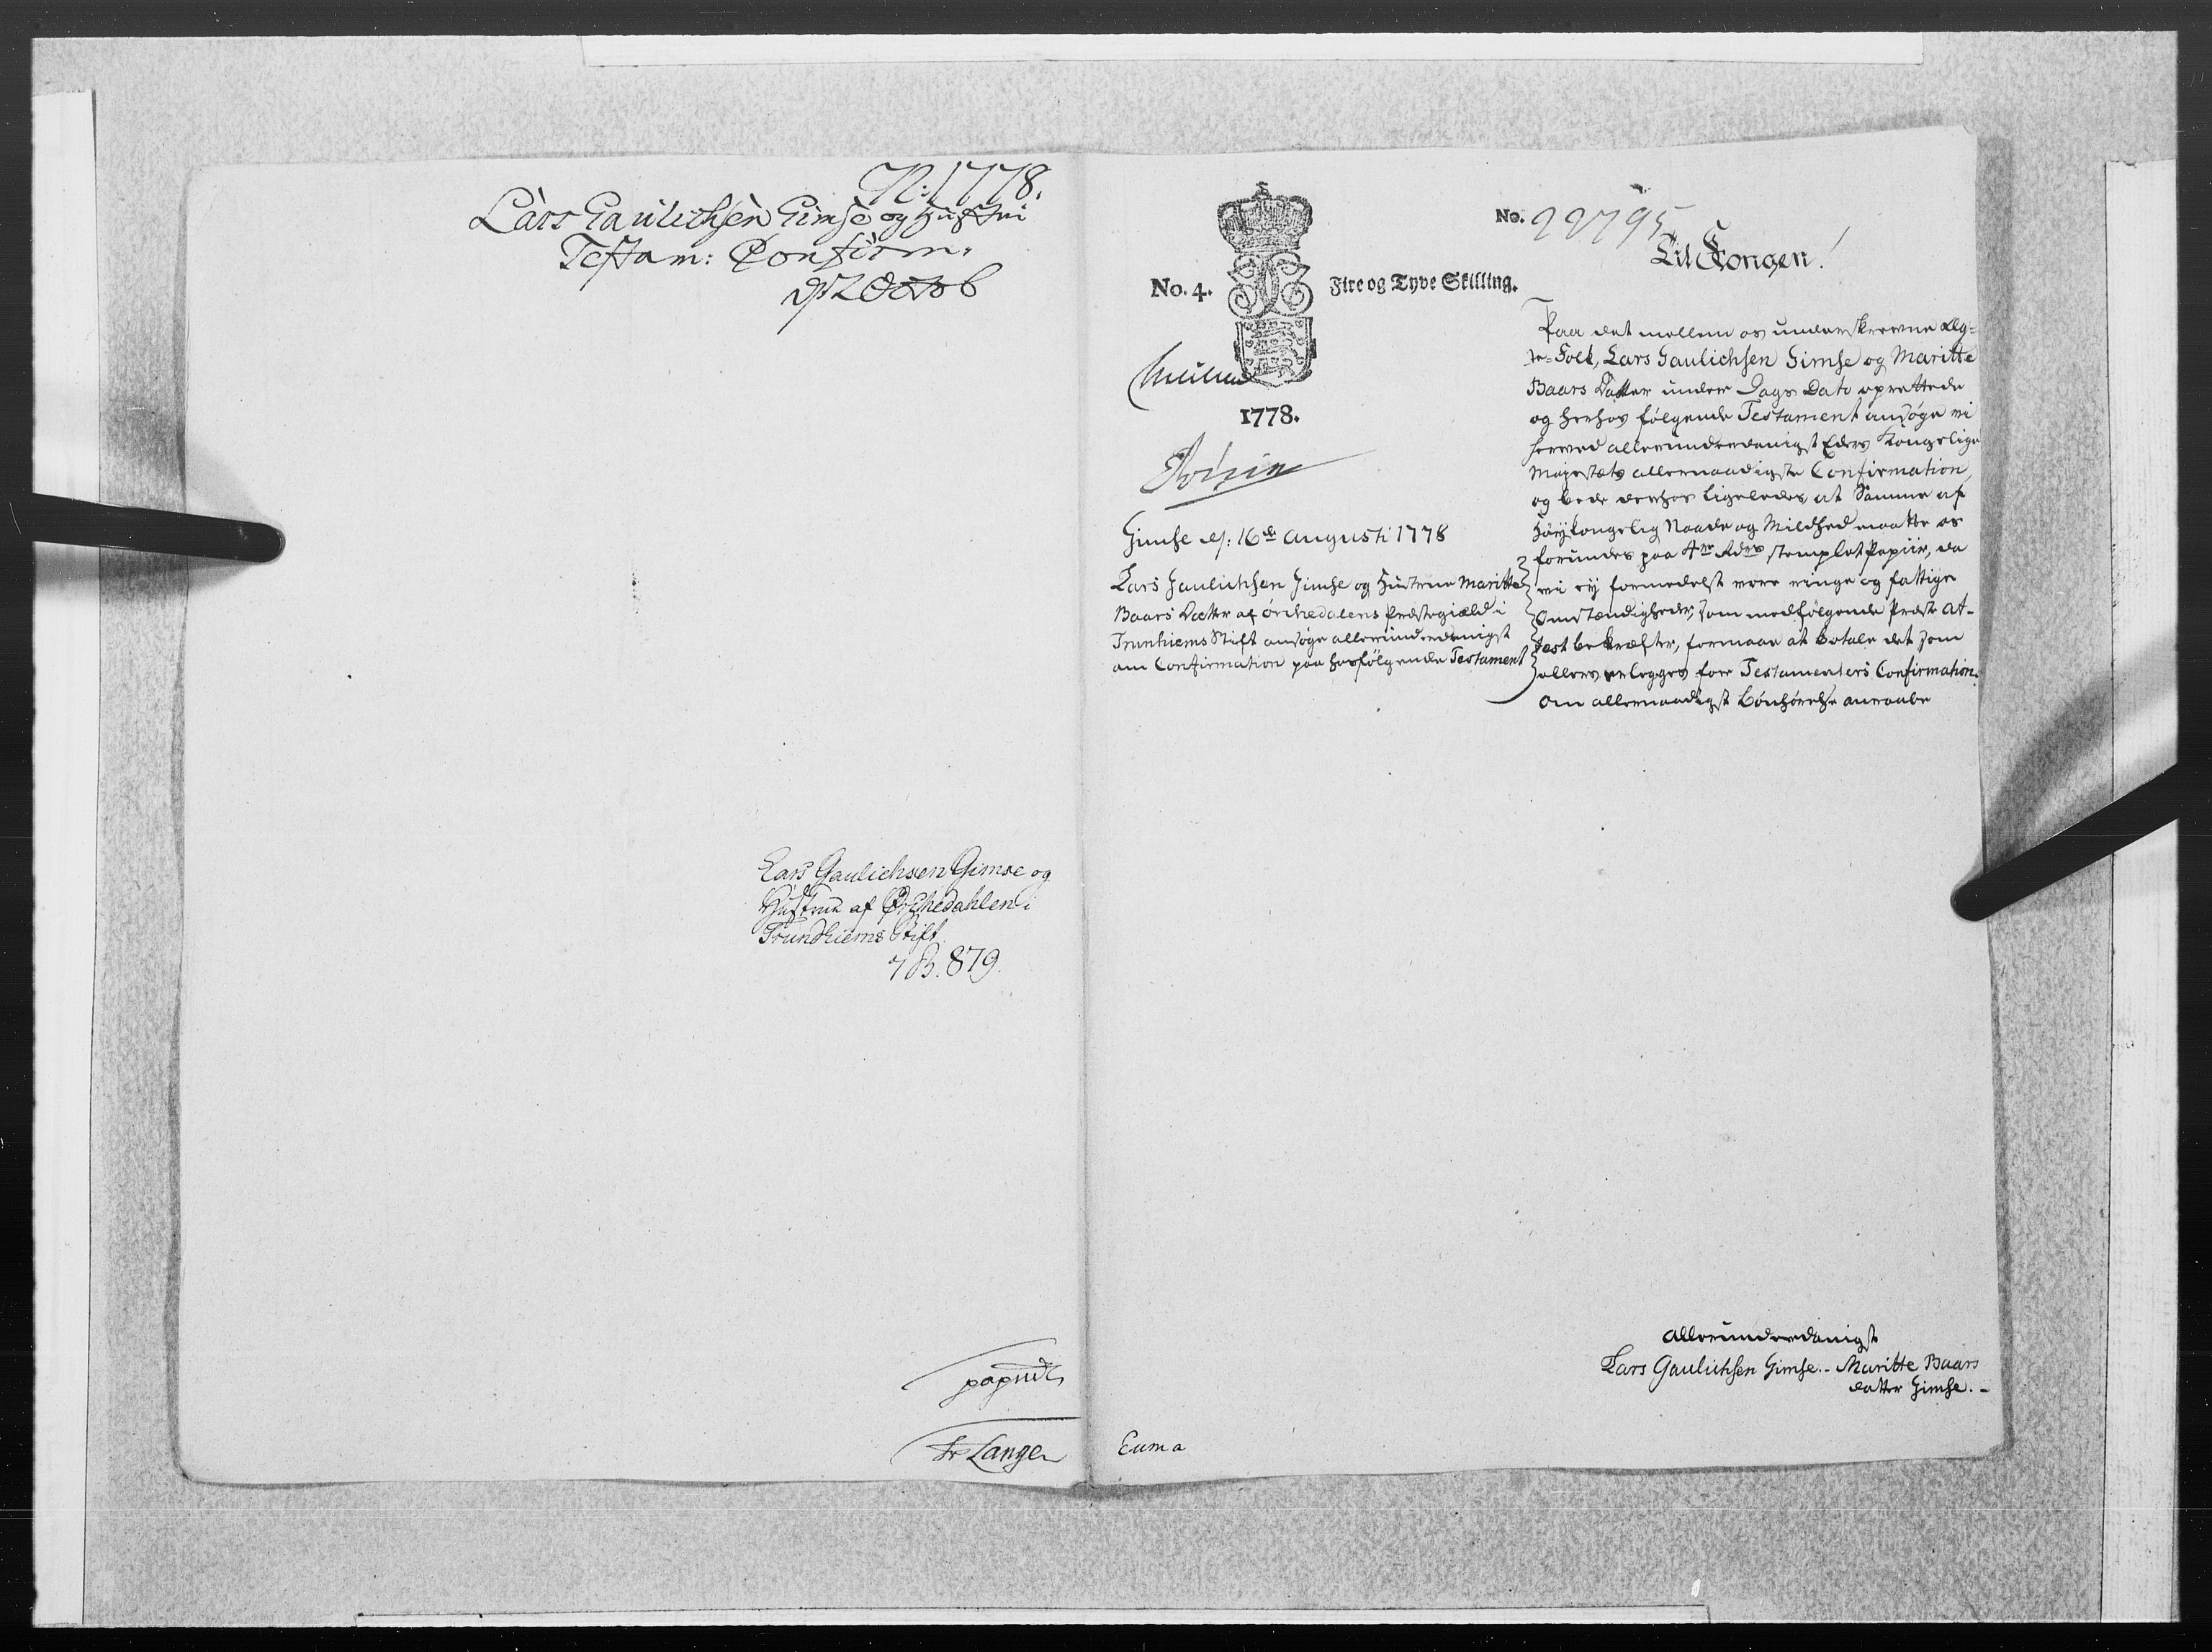 N: 1778.
Lars Gaulichsen Gimse og Hustrui
Testam: Confirm:
d 2 Octob
Lars Gaulichsen Gimse og
Hustrue af Ørchedahlen i
Trundhiems Stift
7 B. 879.
fr Lange
No. 22795
No. 4. Fire og Tyve Skilling.
1778.
Gimse d: 16de Augusti 1778
Lars Gaulichsen Gimse og Hustrue Maritte
Baars Datter af Ørchedalens Præstegiæld i
Trunhiems Stift ansøge allerunderdanigst
om Confirmation paa hosfølgende Testament
Til Kongen!
Paa det mellem os underskrevne Æg-
te-Folk, Lars Gaulichsen Gimse og Maritte
Baars Datter under Dags Dato oprettede
og herhos følgende Testament ansøge vi
herved allerunderdanigst Eders Kongelige
Majestæts allernaadigste Confirmation,
og bede derhos ligeledes at Samme af
Høykongelig Naade og Mildhed maatte os
forundes paa 4re rdrs stemplet Papiir, da
vi ey formedelst vore ringe og fattige
Omstændigheder, som medfølgende Præste At-
test bekræfter, formaae at betale det som
ellers erlegges for Testamenters Confirmation.
Om allernaadigst Bønhørelse anraabe
allerunderdanigst
Lars Gaulichsen Gimse.- Maritte Baars
datter Gimse.-
Euma